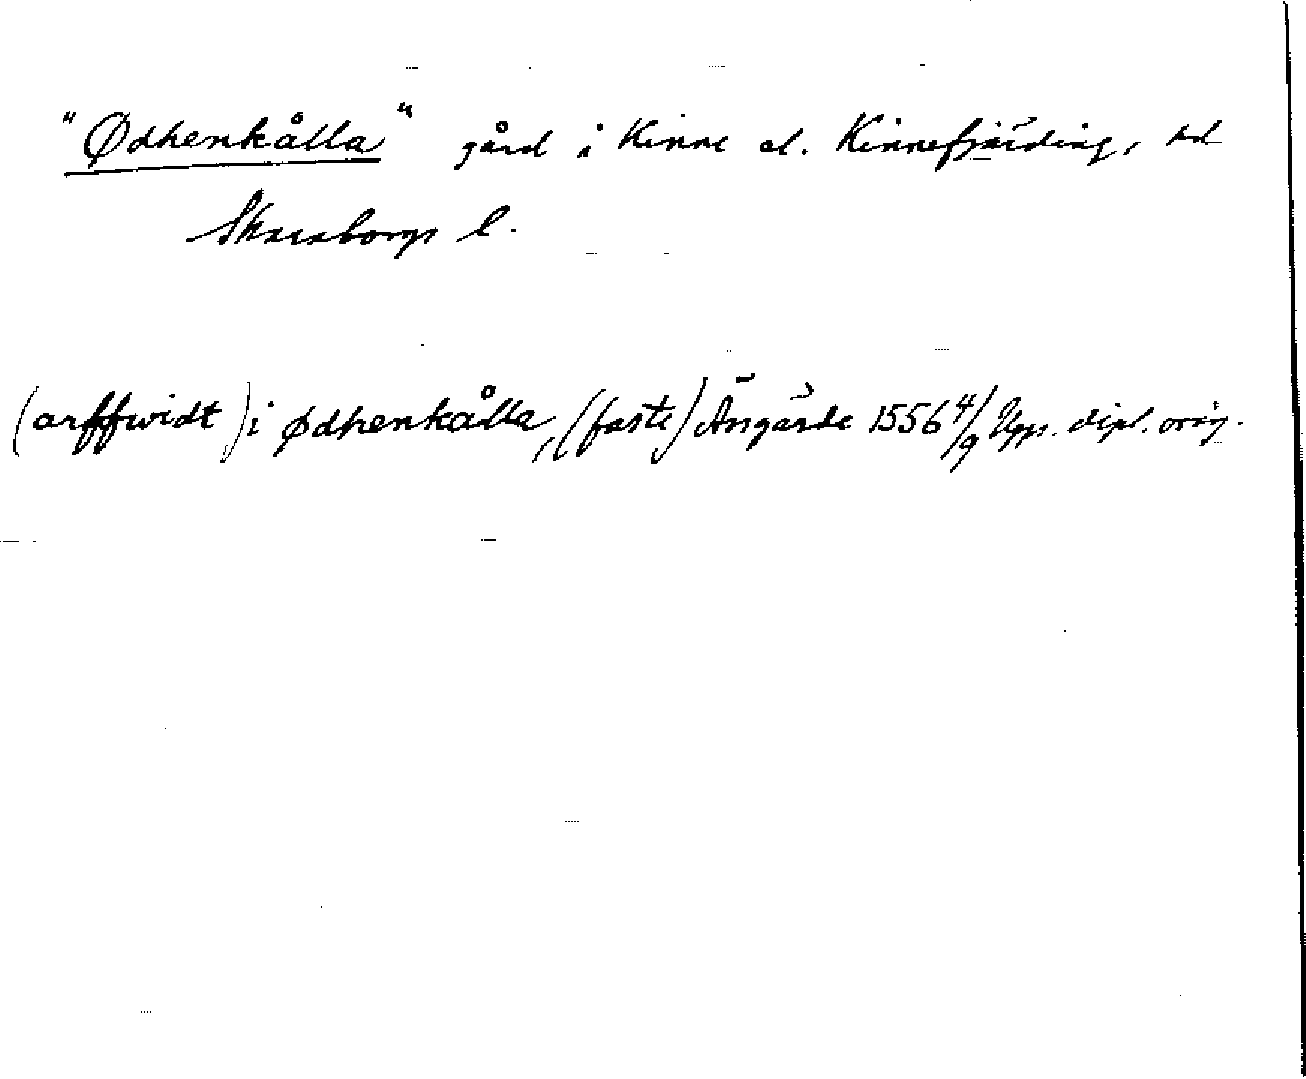 "Ødhenkålla" gård i Kinne el. Kinnefjärding, hd
Skaraborgs l.
(arffwidt) i ødhenkålla, (faste) Ängärde 1556 4/9 Upps. dipl. orig.